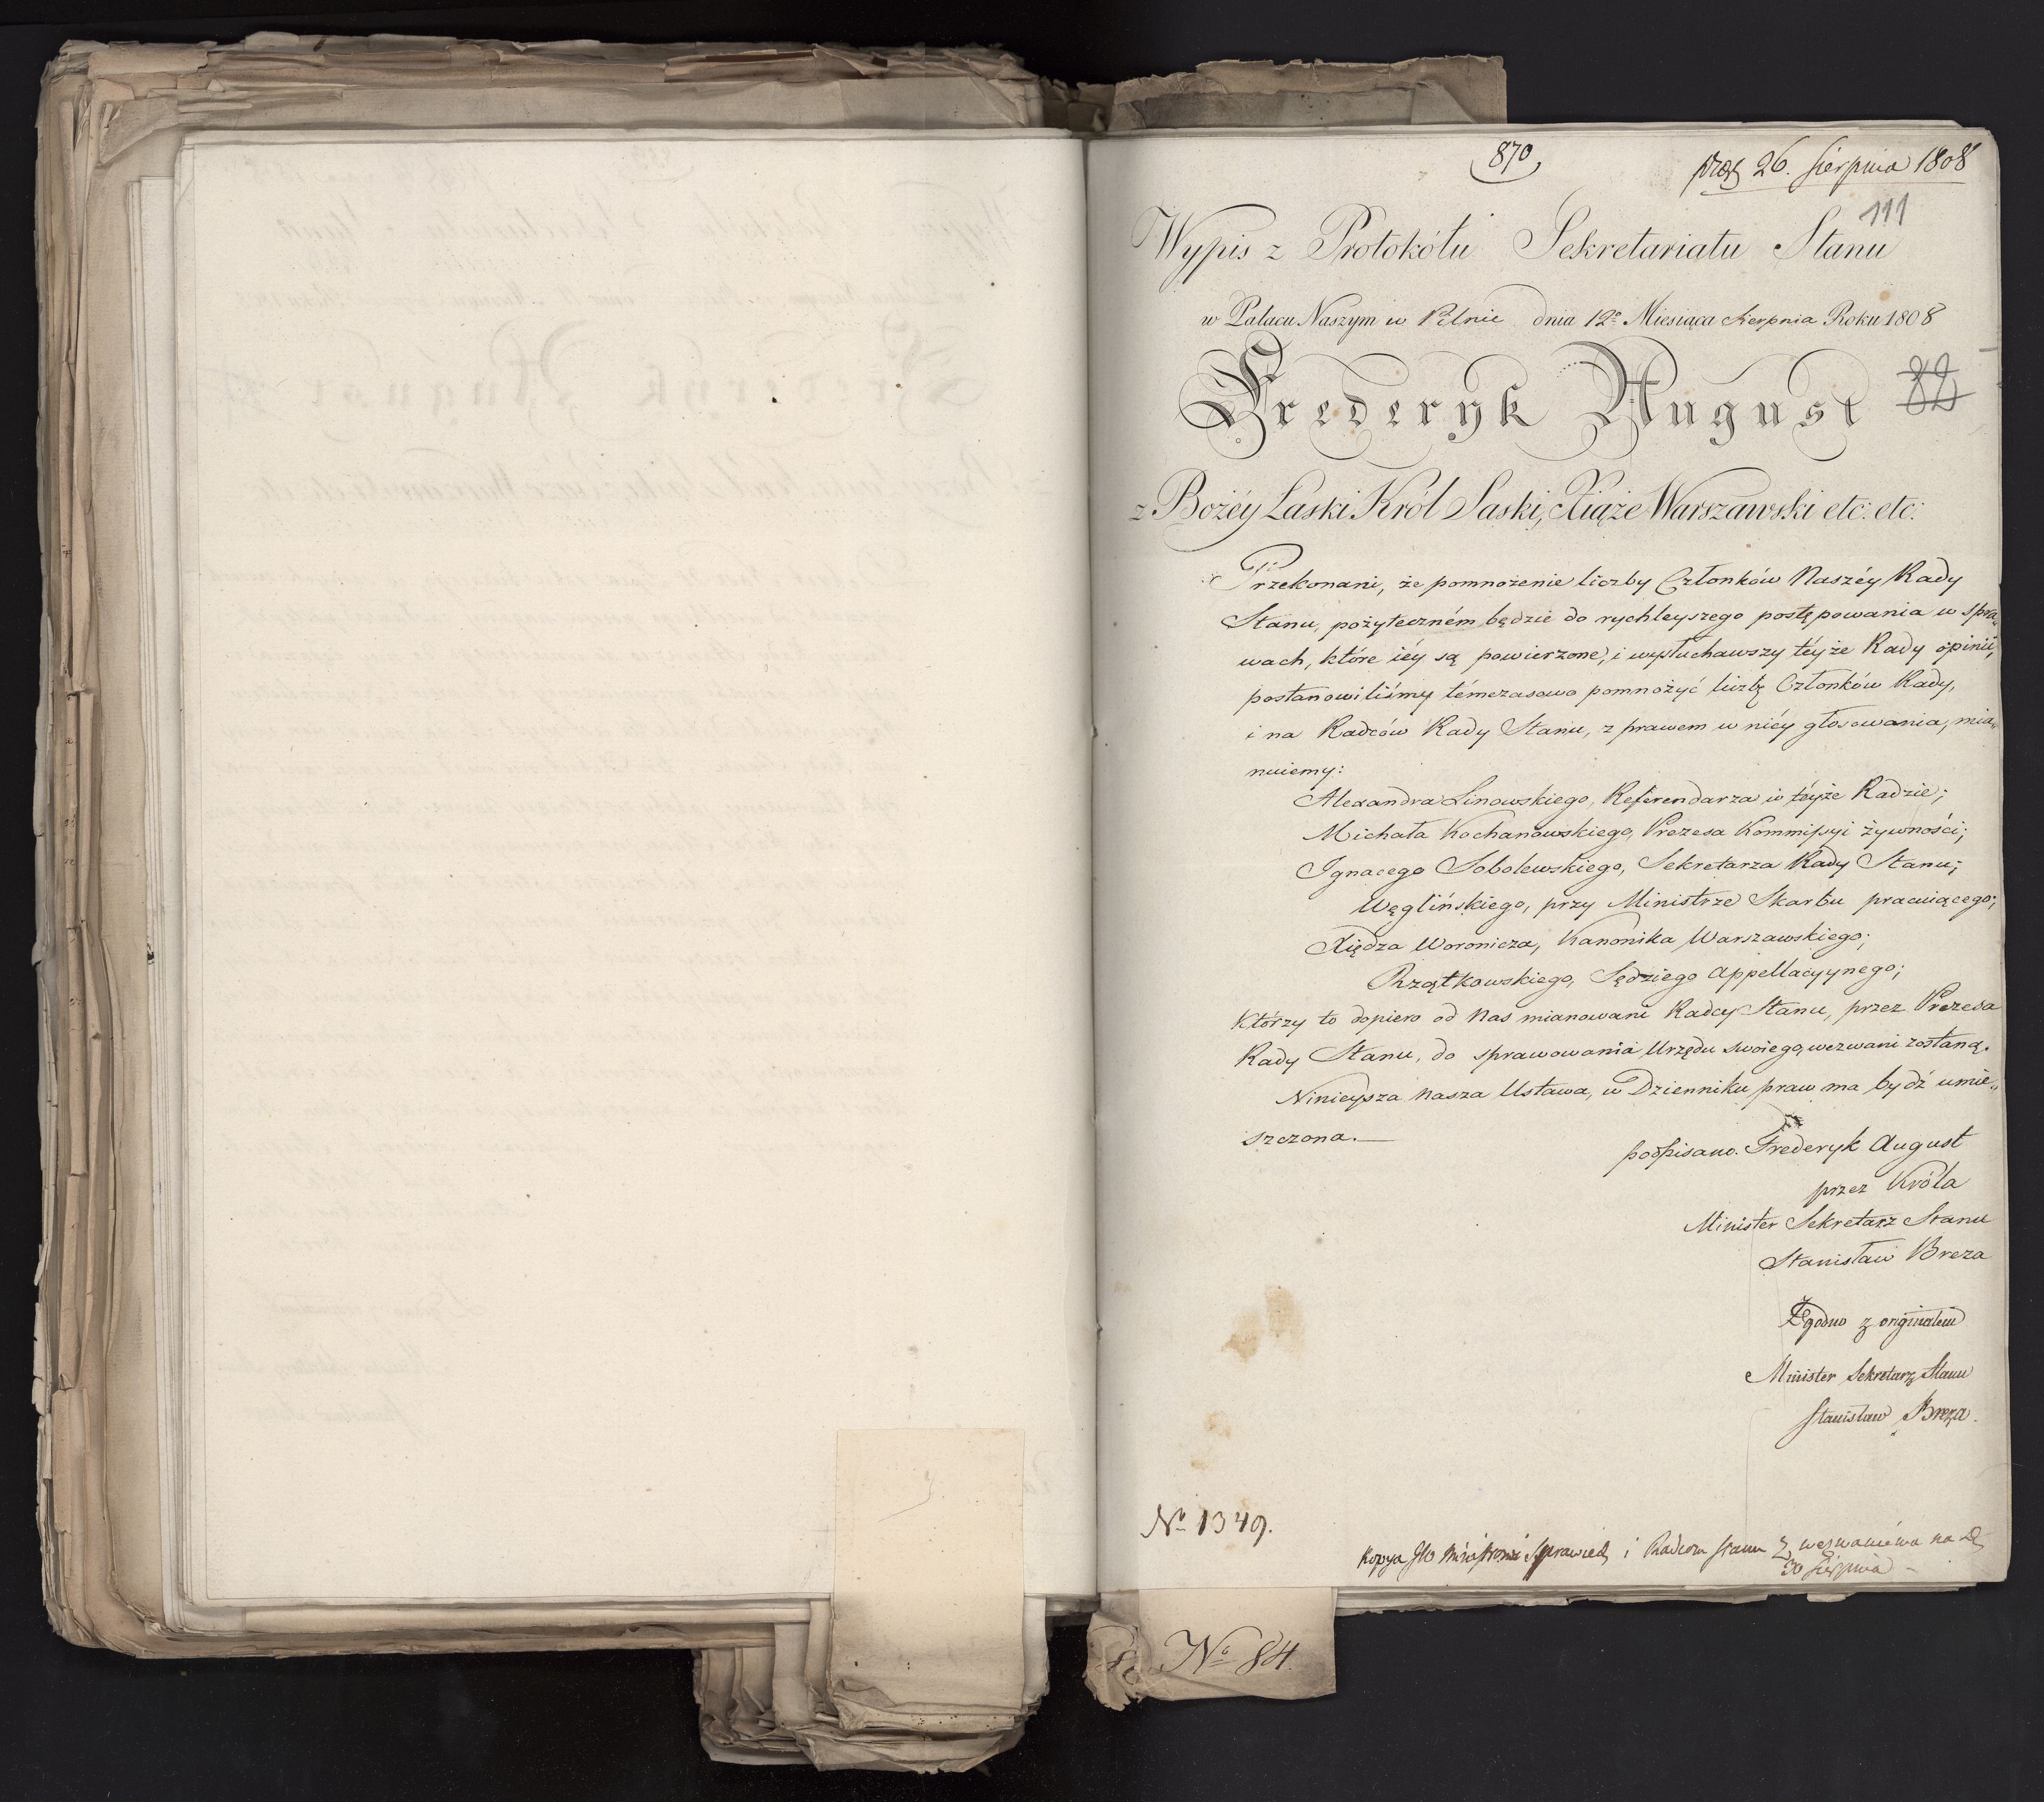 870
prez 26. Sierpnia 1808
111
Wypis z Protokółu Sekretariatu Stanu
w Pałacu Naszym w Pilnie dnia 12º Miesiąca Sierpnia Roku 1808
Frederyk August
z Bożéy Łaski Król Saski, Xiąże Warszawski etc: etc:
Przekonani, że pomnożenie liczby Członków Naszéy Rady
Stanu, pożyteczném będzie do rychleyszego postępowania w spra„
wach, które iéy są powierzone, i wysłuchawszy téyże Rady opinii,
postanowiliśmy témczasowo pomnożyć liczbę Członków Rady,
i na Radców Rady Stanu, z prawem w niéy głosowania, mia„
nuiemy:
Alexandra Linowskiego, Referendarza w téyże Radzie;
Michała Kochanowskiego, Prezesa Kommissyi żywności;
Ignacego Sobolewskiego, Sekretarza Rady Stanu;
Węglińskiego, przy Ministrze Skarbu pracuiącego;
Xiędza Woronicza, Kanonika Warszawskiego;
Rzątkowskiego, Sędziego Appellacyynego;
Którzy to dopiero od Nas mianowani Radcy Stanu, przez Prezesa
Rady Stanu, do sprawowania Urzędu swoiego, wezwani zostaną.
Ninieysza nasza Ustawa, w Dzienniku praw ma bydź umie„
szczona.—
podpisano. Frederyk August
przez Króla
Minister Sekretarz Stanu
Stanisław Breza
Zgodno z originałem
Minister Sekretarz Stanu
Stanisław Breza.
Nº 1349.
Kopya JW Ministrowi Sprawied i Radcom Stanu z wezwaniem na d
30 Sierpnia –
Nº 84.